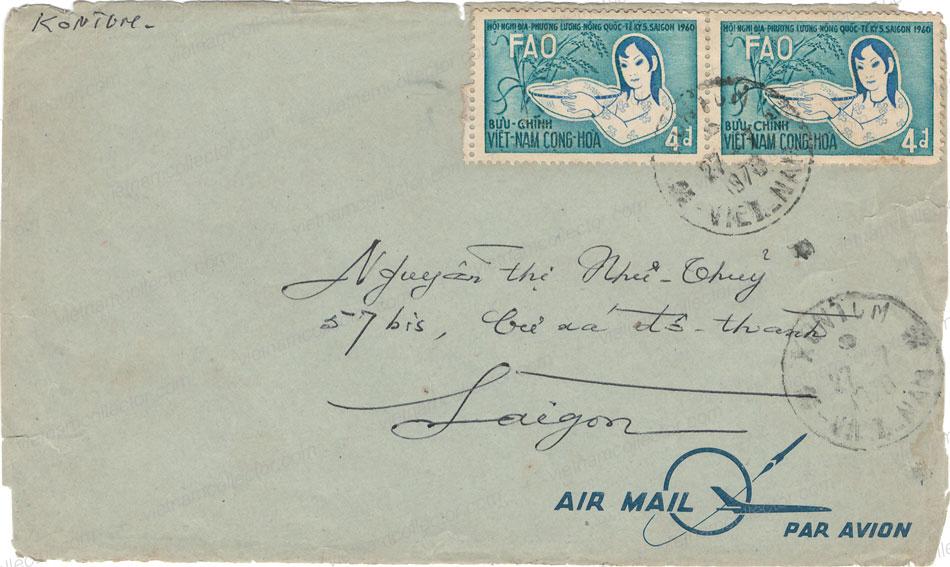 KONTUM-
HỘI NGHỊ ĐỊA-PHƯƠNG LƯƠNG-NÔNG QUỐC-TẾ KỲ 5. SAIGON 1960
FAO
BƯU-CHÍNH
VIỆT-NAM CỘNG-HÒA
4đ
HỘI NGHỊ ĐỊA-PHƯƠNG LƯƠNG-NÔNG QUỐC-TẾ KỲ 5. SAIGON 1960
FAO
BƯU-CHÍNH
VIỆT-NAM CỘNG-HÒA
4đ
27
1970
VIET-NAM
Nguyễn thị Như-Thuỷ
57 bis, Cư xá đô-thành
Saigon
KONTUM
27
VIET-NAM
AIR MAIL
PAR AVION
vietnamcollector.com